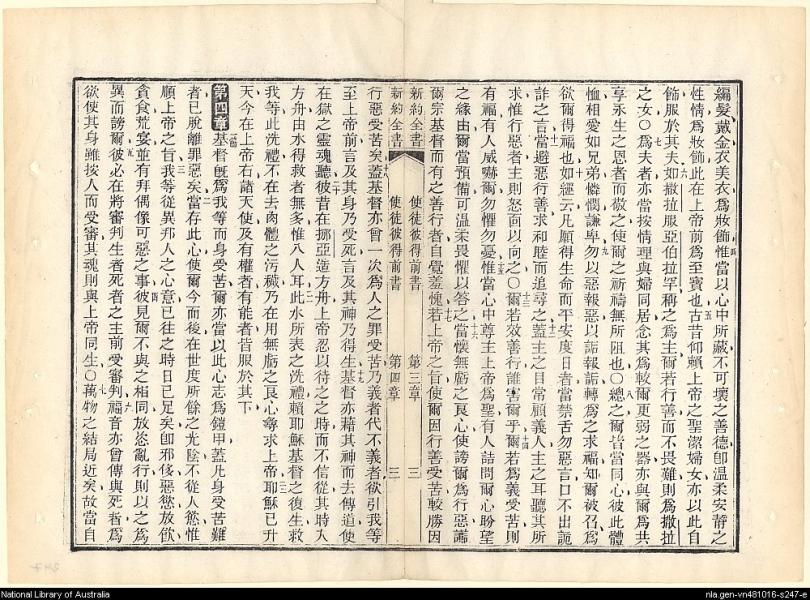 編髮戴金衣美衣爲妝飾惟當以心中所藏不可壞之善德卽溫柔安靜之
性情爲妝飾此在上帝前爲至寶也古昔仰賴上帝之聖潔婦女亦以此自
飾服於其夫如撒拉服亞伯拉罕稱之爲主爾若行善而不畏難則爲撒拉
之女〇爲夫者亦當按情理與婦同居念其爲較爾更弱之器亦與爾爲共
享永生之恩者而敬之使爾之祈禱無所阻也〇總之爾皆當同心彼此體
恤相愛如兄弟憐憫謙卑勿以惡報惡以詬報詬轉爲之求福如爾被召爲
欲爾得福也如經云凡願得生命而平安度日者當禁舌勿惡言口不出詭
詐之言當避惡行善求和睦而追尋之蓋主之目常顧義人主之耳聽其所
求惟行惡者主則怒面以向之〇爾若效善行誰害爾乎爾若爲義受苦則
有福有人威嚇爾勿懼勿憂惟當心中尊主上帝爲聖有人詰問爾心盼望
之緣由爾當預備可溫柔畏懼以答之當懷無虧之良心使謗爾爲行惡讟
爾宗基督而有之善行者自覺羞愧若上帝之旨使爾因行善受苦較勝因
新約全書 使徒彼得前書 第三章 三
新約全書 使徒彼得前書 第四章 三
行惡受苦矣蓋基督亦曾一次爲人之罪受苦乃義者代不義者欲引我等
至上帝前言及其身乃受死言及其神乃得生基督亦藉其神而去傳道使
在獄之靈魂聽彼昔在挪亞造方舟上帝忍以待之之時而不信從其時入
方舟由水得救者無多惟八人耳此水所表之洗禮賴耶穌基督之復生救
我等此洗禮不在去肉體之汚穢乃在用無虧之良心尋求上帝耶穌已升
天今在上帝右諸天使及有權者有能者皆服於其下
第四章 基督旣爲我等而身受苦爾亦當以此心志爲鎧甲蓋凡身受苦難
者已脫離罪惡矣當存此心使爾今而後在世度所餘之光陰不從人慾惟
順上帝之旨我等從異邦人之心意已往之時日已足矣卽邪侈惡慾放飮
貪食荒宴並有拜偶像可惡之事彼見爾不與之相同放恣亂行則以之爲
異而謗爾彼必在將審判生者死者之主前受審判福音亦曾傳與死者爲
欲使其身雖按人而受審其魂則與上帝同生〇萬物之結局近矣故當自
National Library of Australia
nla.gen-vn481016-s247-e